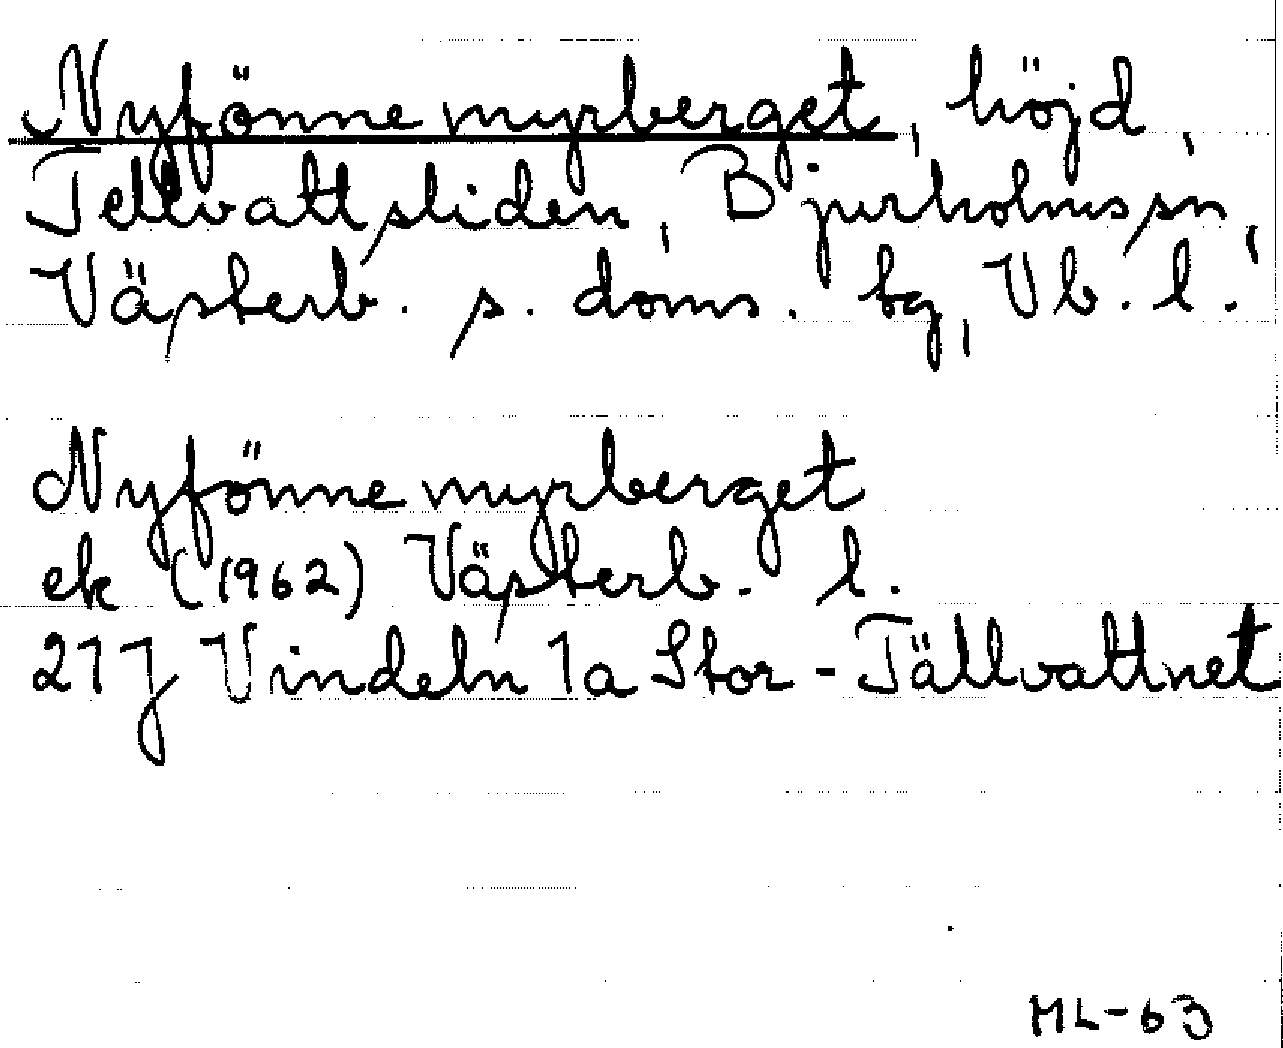 Nyfönnemyrberget, höjd,
Tellvattsliden, Bjurholms sn,
Västerb. s. doms. bg, Vb. l.
Nyfönnemyrberget
ek (1962) Västerb. l.
21 J Vindeln 1a Stor-Tällvattnet
ML-63